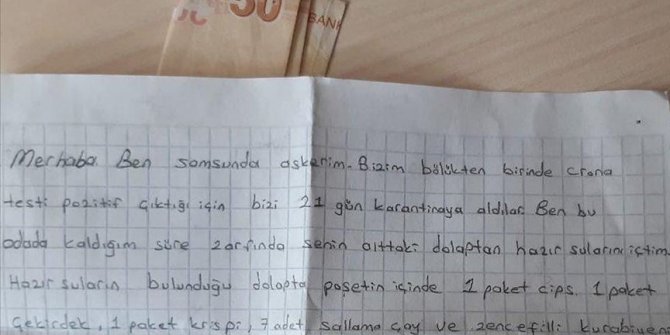 50
BANK
Merhaba Ben samsunda askerim. Bizim bölükten birinde crona
testi pozitif çıktığı için bizi 21 gün karantinaya aldılar. Ben bu
odada kaldığım süre zarfında senin alttaki dolaptan hazır sularını içtim.
Hazır suların bulunduğu dolapta poşetin içinde 1 paket cips, 1 paket
çekirdek, 1 paket krispi, 7 adet sallama çay ve zencefilli kurabiye